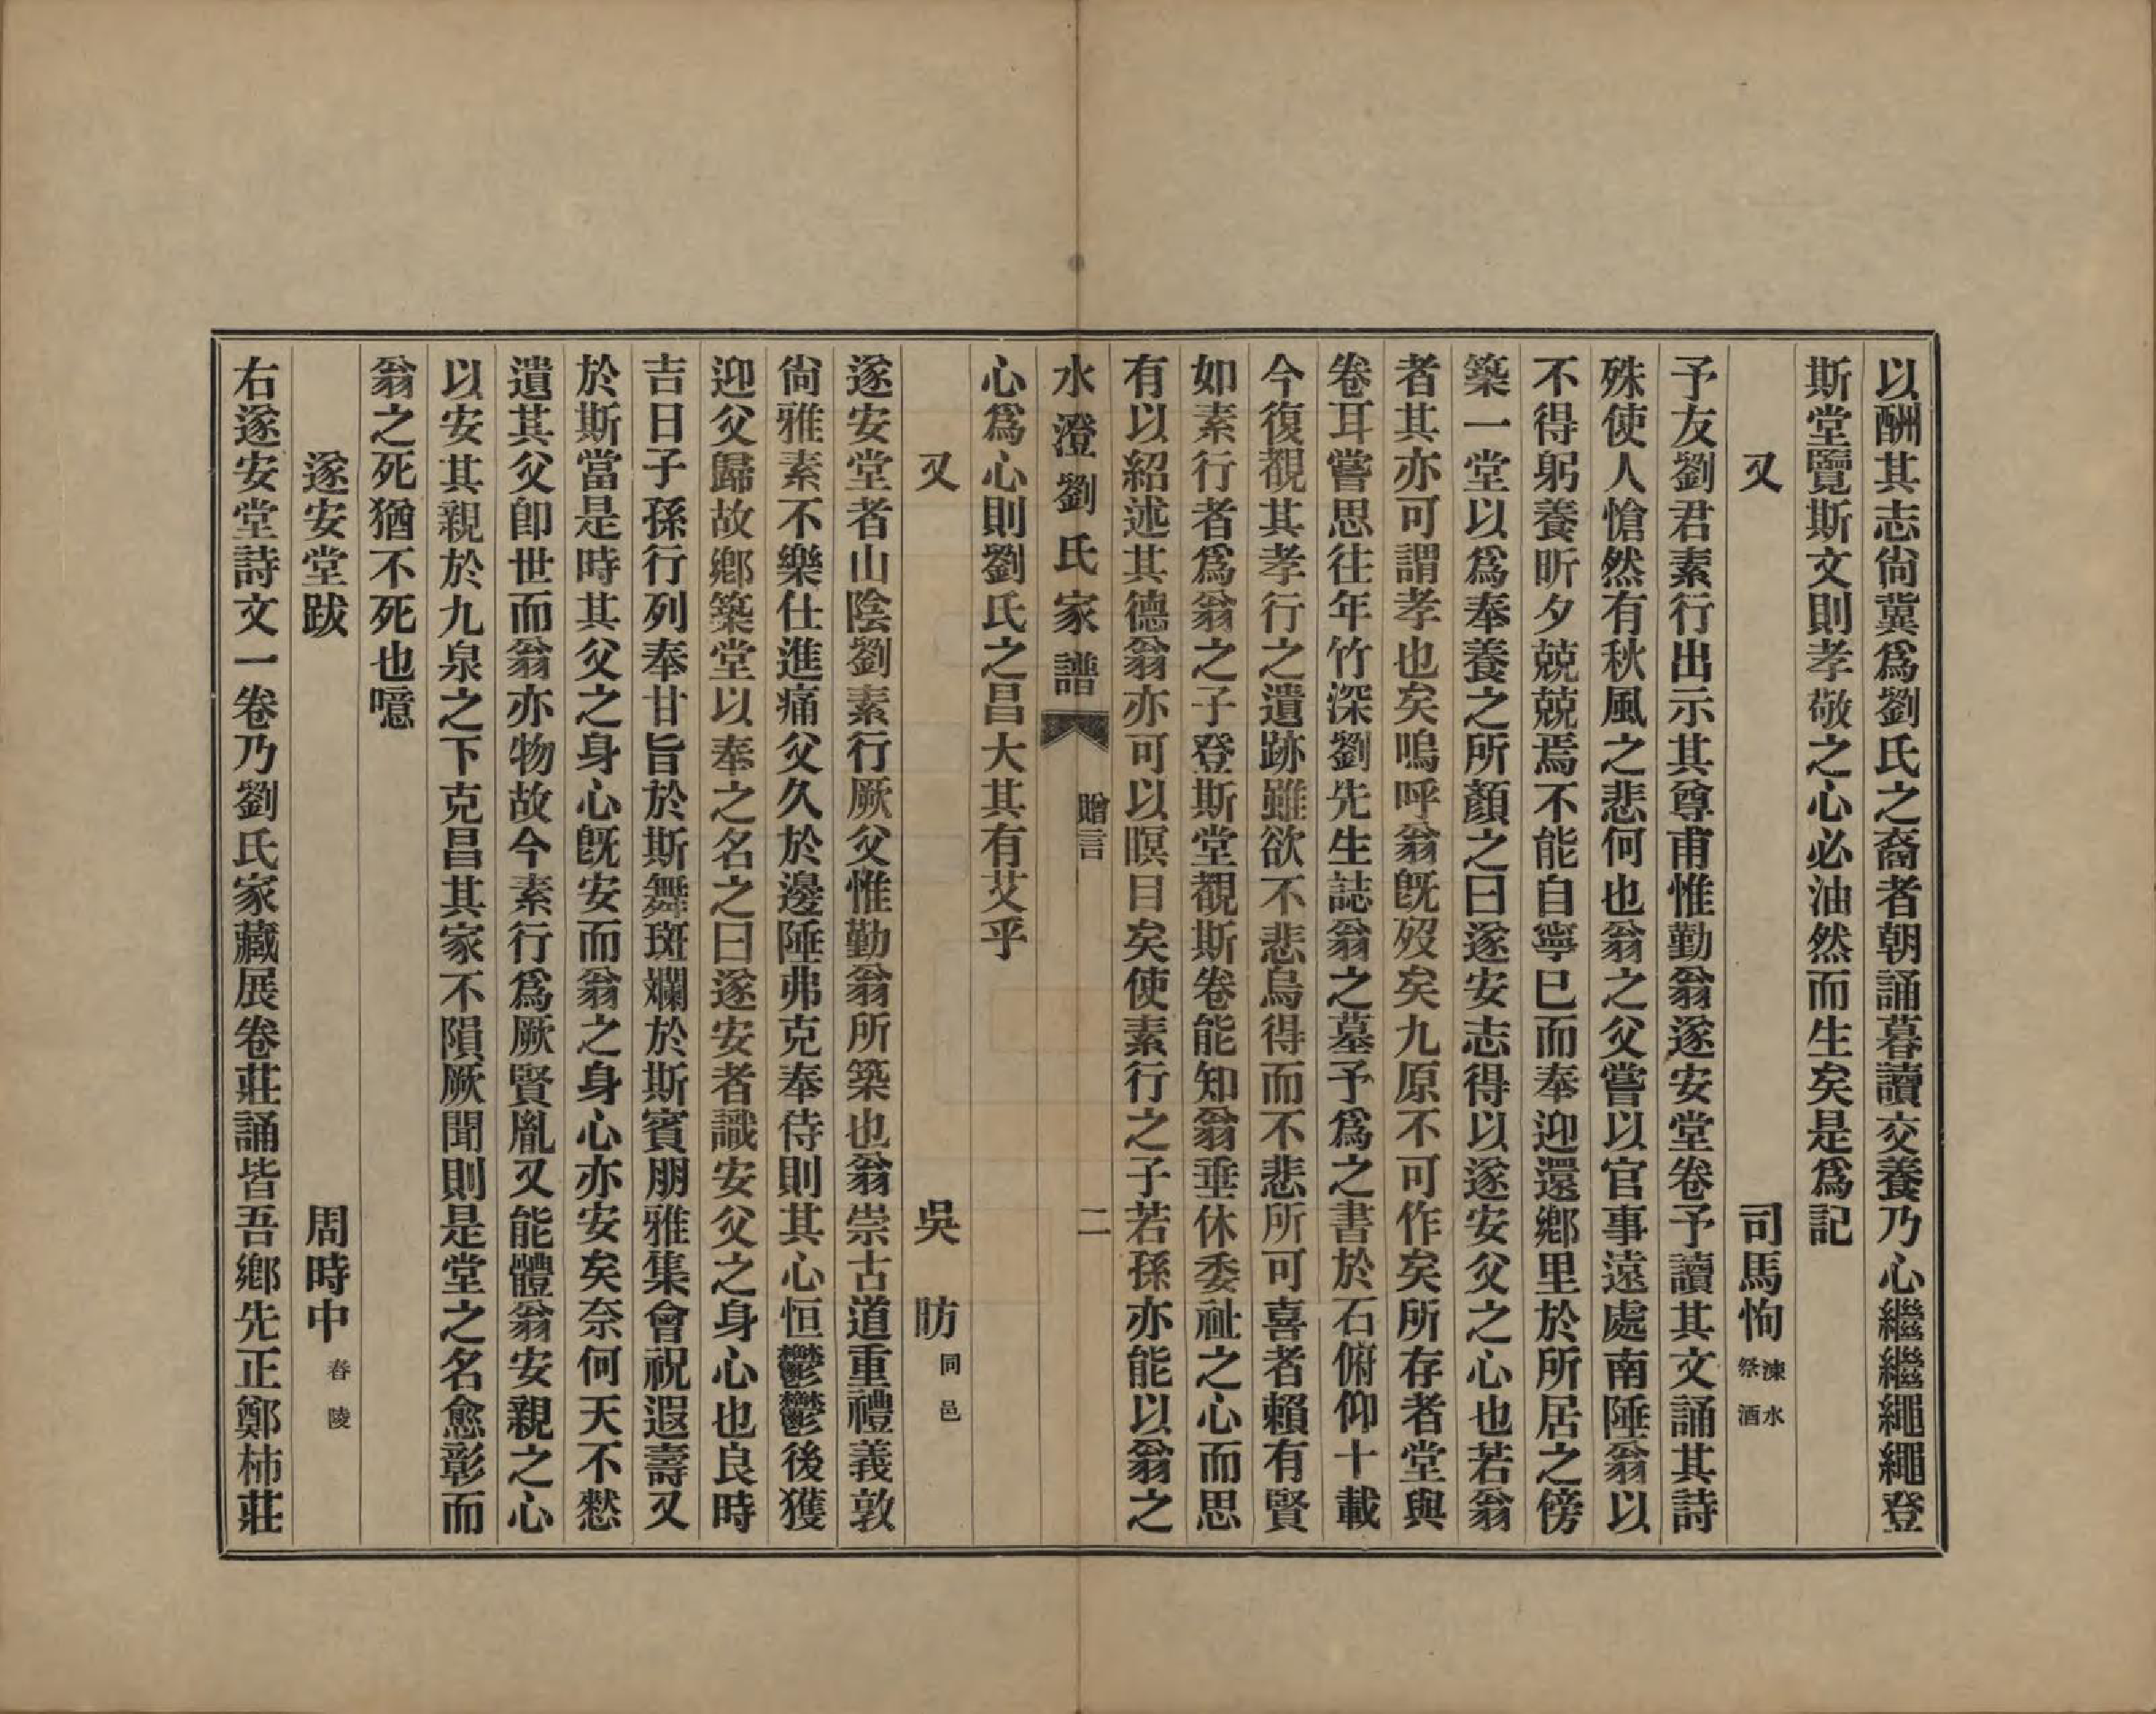 以酬其志尙冀爲劉氏之裔者朝誦暮讀交養乃心繼繼繩繩登
斯堂覽斯文則孝敬之心必油然而生矣是爲記
又 司馬恂 涑水祭酒
予友劉君素行出示其尊甫惟勤翁遂安堂卷予讀其文誦其詩
殊使人愴然有秋風之悲何也翁之父嘗以官事遠處南陲翁以
不得躬養昕夕兢兢焉不能自寧已而奉迎還鄉里於所居之傍
築一堂以爲奉養之所顏之曰遂安志得以遂安父之心也若翁
者其亦可謂孝也矣嗚呼翁旣歿矣九原不可作矣所存者堂與
卷耳嘗思往年竹深劉先生誌翁之墓予爲之書於石俯仰十載
今復覩其孝行之遺跡雖欲不悲烏得而不悲所可喜者賴有賢
如素行者爲翁之子登斯堂覩斯卷能知翁垂休委祉之心而思
有以紹述其德翁亦可以瞑目矣使素行之子若孫亦能以翁之
水澄劉氏家譜 贈言 二
心爲心則劉氏之昌大其有艾乎
又 吳昉 同邑
遂安堂者山陰劉素行厥父惟勤翁所築也翁崇古道重禮義敦
尙雅素不樂仕進痛父久於邊陲弗克奉侍則其心恒鬱鬱後獲
迎父歸故鄉築堂以奉之名之曰遂安者識安父之身心也良時
吉日子孫行列奉甘旨於斯舞斑斕於斯賓朋雅集會祝遐壽又
於斯當是時其父之身心旣安而翁之身心亦安矣奈何天不憖
遺其父卽世而翁亦物故今素行爲厥賢胤又能體翁安親之心
以安其親於九泉之下克昌其家不隕厥聞則是堂之名愈彰而
翁之死猶不死也噫
遂安堂跋 周時中 春陵
右遂安堂詩文一卷乃劉氏家藏展卷莊誦皆吾鄉先正鄭柿莊